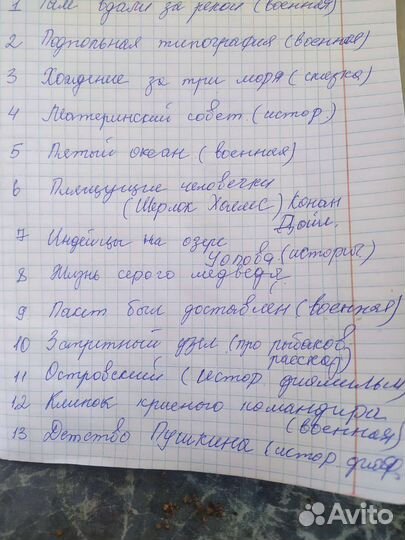 1 Там вдали за рекой (военная)
2 Подпольная типография (военная)
3 Хождение за три моря (сказка)
4 Материнский совет (истор)
5 Пятый океан (военная)
6 Пляшущие человечки
(Шерлок Холмс) Конан
Дойл.
7 Индейцы на озере
(историч.)
8 Жизнь серого медведя.
9 Пакет был доставлен (военная)
10 Запретный (про рыбаков
рассказ)
11 Островский (истор диафильм)
12 Клинок красного командира
(военная)
13 Детство Пушкина (истор диаф.
Avito